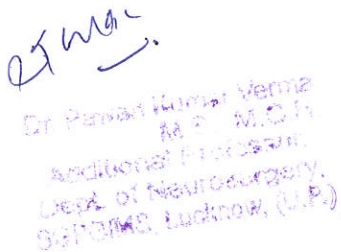 Dr. Pawan Kumar Verma
M.S., M.C.h
Additional Professor,
Dept. of Neurosurgery,
SGPGIMS, Lucknow, (U.P.)